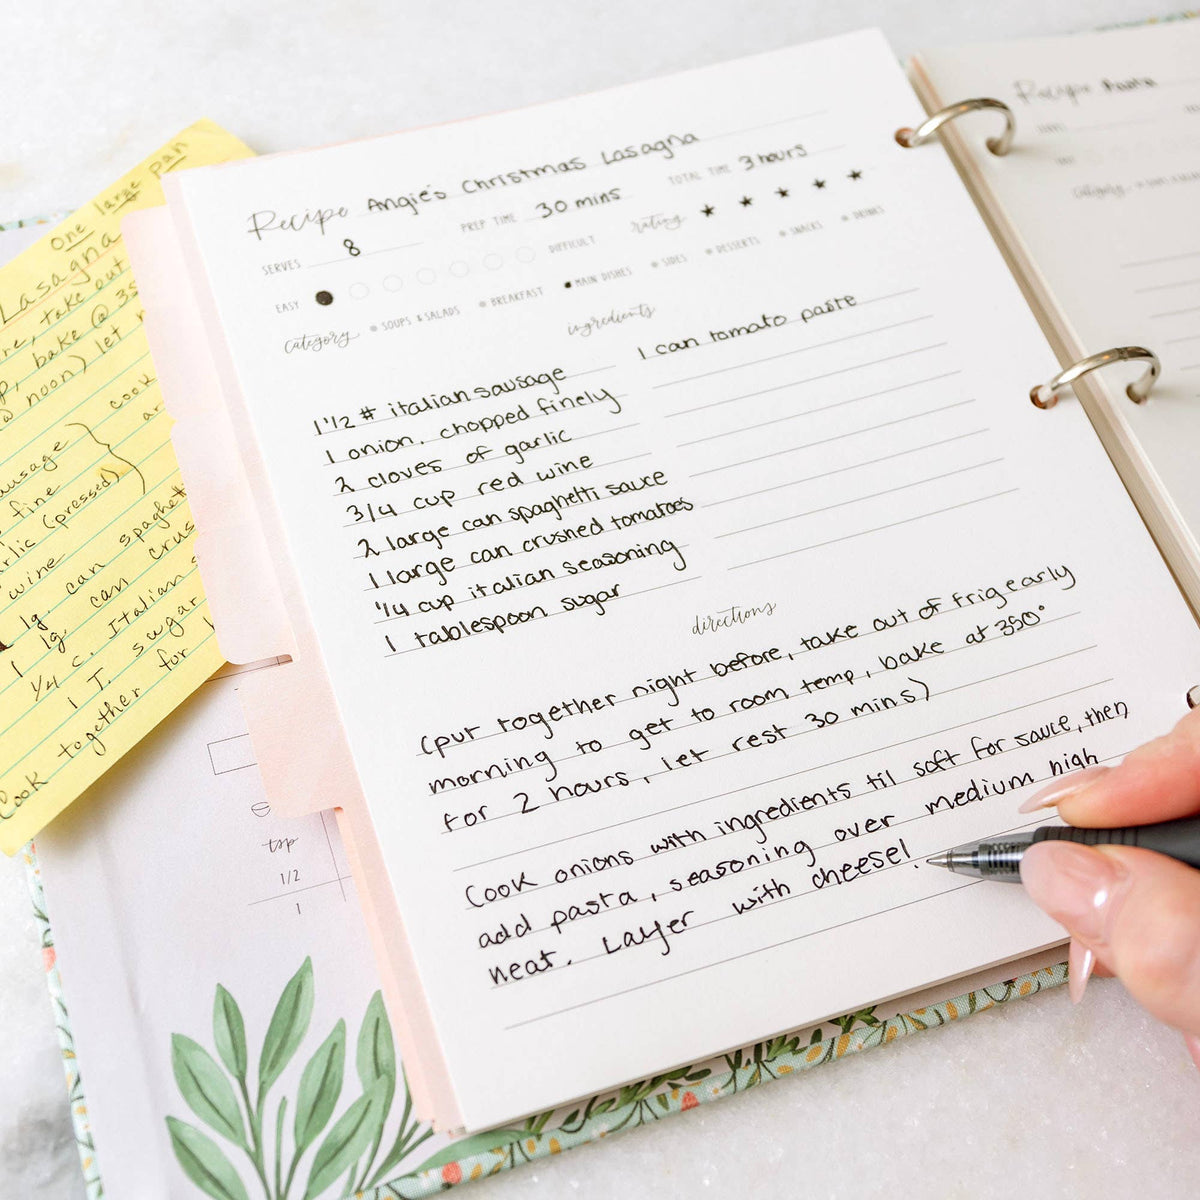 Recipe Angie's Christmas Lasagna
SERVES 8 PREP TIME 30 mins TOTAL TIME 3 hours
EASY DIFFICULT rating ★ ★ ★ ★ ★
category SOUPS & SALADS BREAKFAST MAIN DISHES SIDES DESSERTS SNACKS DRINKS
ingredients
1 1/2 # italian sausage
1 onion, chopped finely
2 cloves of garlic
3/4 cup red wine
2 large can spaghetti sauce
1 large can crushed tomatoes
1/4 cup italian seasoning
1 tablespoon sugar
1 can tomato paste
directions
(put together night before, take out of frig early
morning to get to room temp, bake at 350°
for 2 hours, let rest 30 mins)
Cook onions with ingredients til soft for sauce, then
add pasta, seasoning over medium high
heat. Layer with cheese!
One large pan
Lasagna
take out
bake @ 35
@ noon) let
cook
fine
(pressed)
wine
1 lg. can spaghet
1 lg can crus
1/4 c. Italian
1 T. sugar
Cook together for
tsp
1/2
1
Recipe Pasta
category